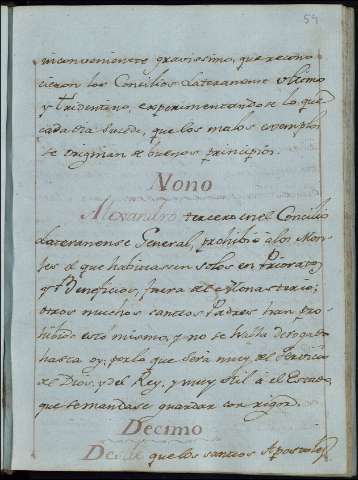 59
inconveniente gravissimo, que recono-
cieron los Concilios Lateranense ultimo
y Tridentino, experimentandose lo que
cada dia sucede, que los malos exemplos
se originan de buenos principios.
Nono
Alexandro tercero en el Concilio
Lateranense General, prohibió a los Mon-
jes el que habitassen solos en Prioratos
y Beneficios, fuera del Monasterio;
otros muchos santos Padres han pro-
hibido esto mismo, y no se halla derogado
hasta oy, por lo que será muy del servicio
de Dios, y del Rey, y muy util á el Estado,
que se mandase guardar con rigor.
Decimo
Desde que los santos Apostoles